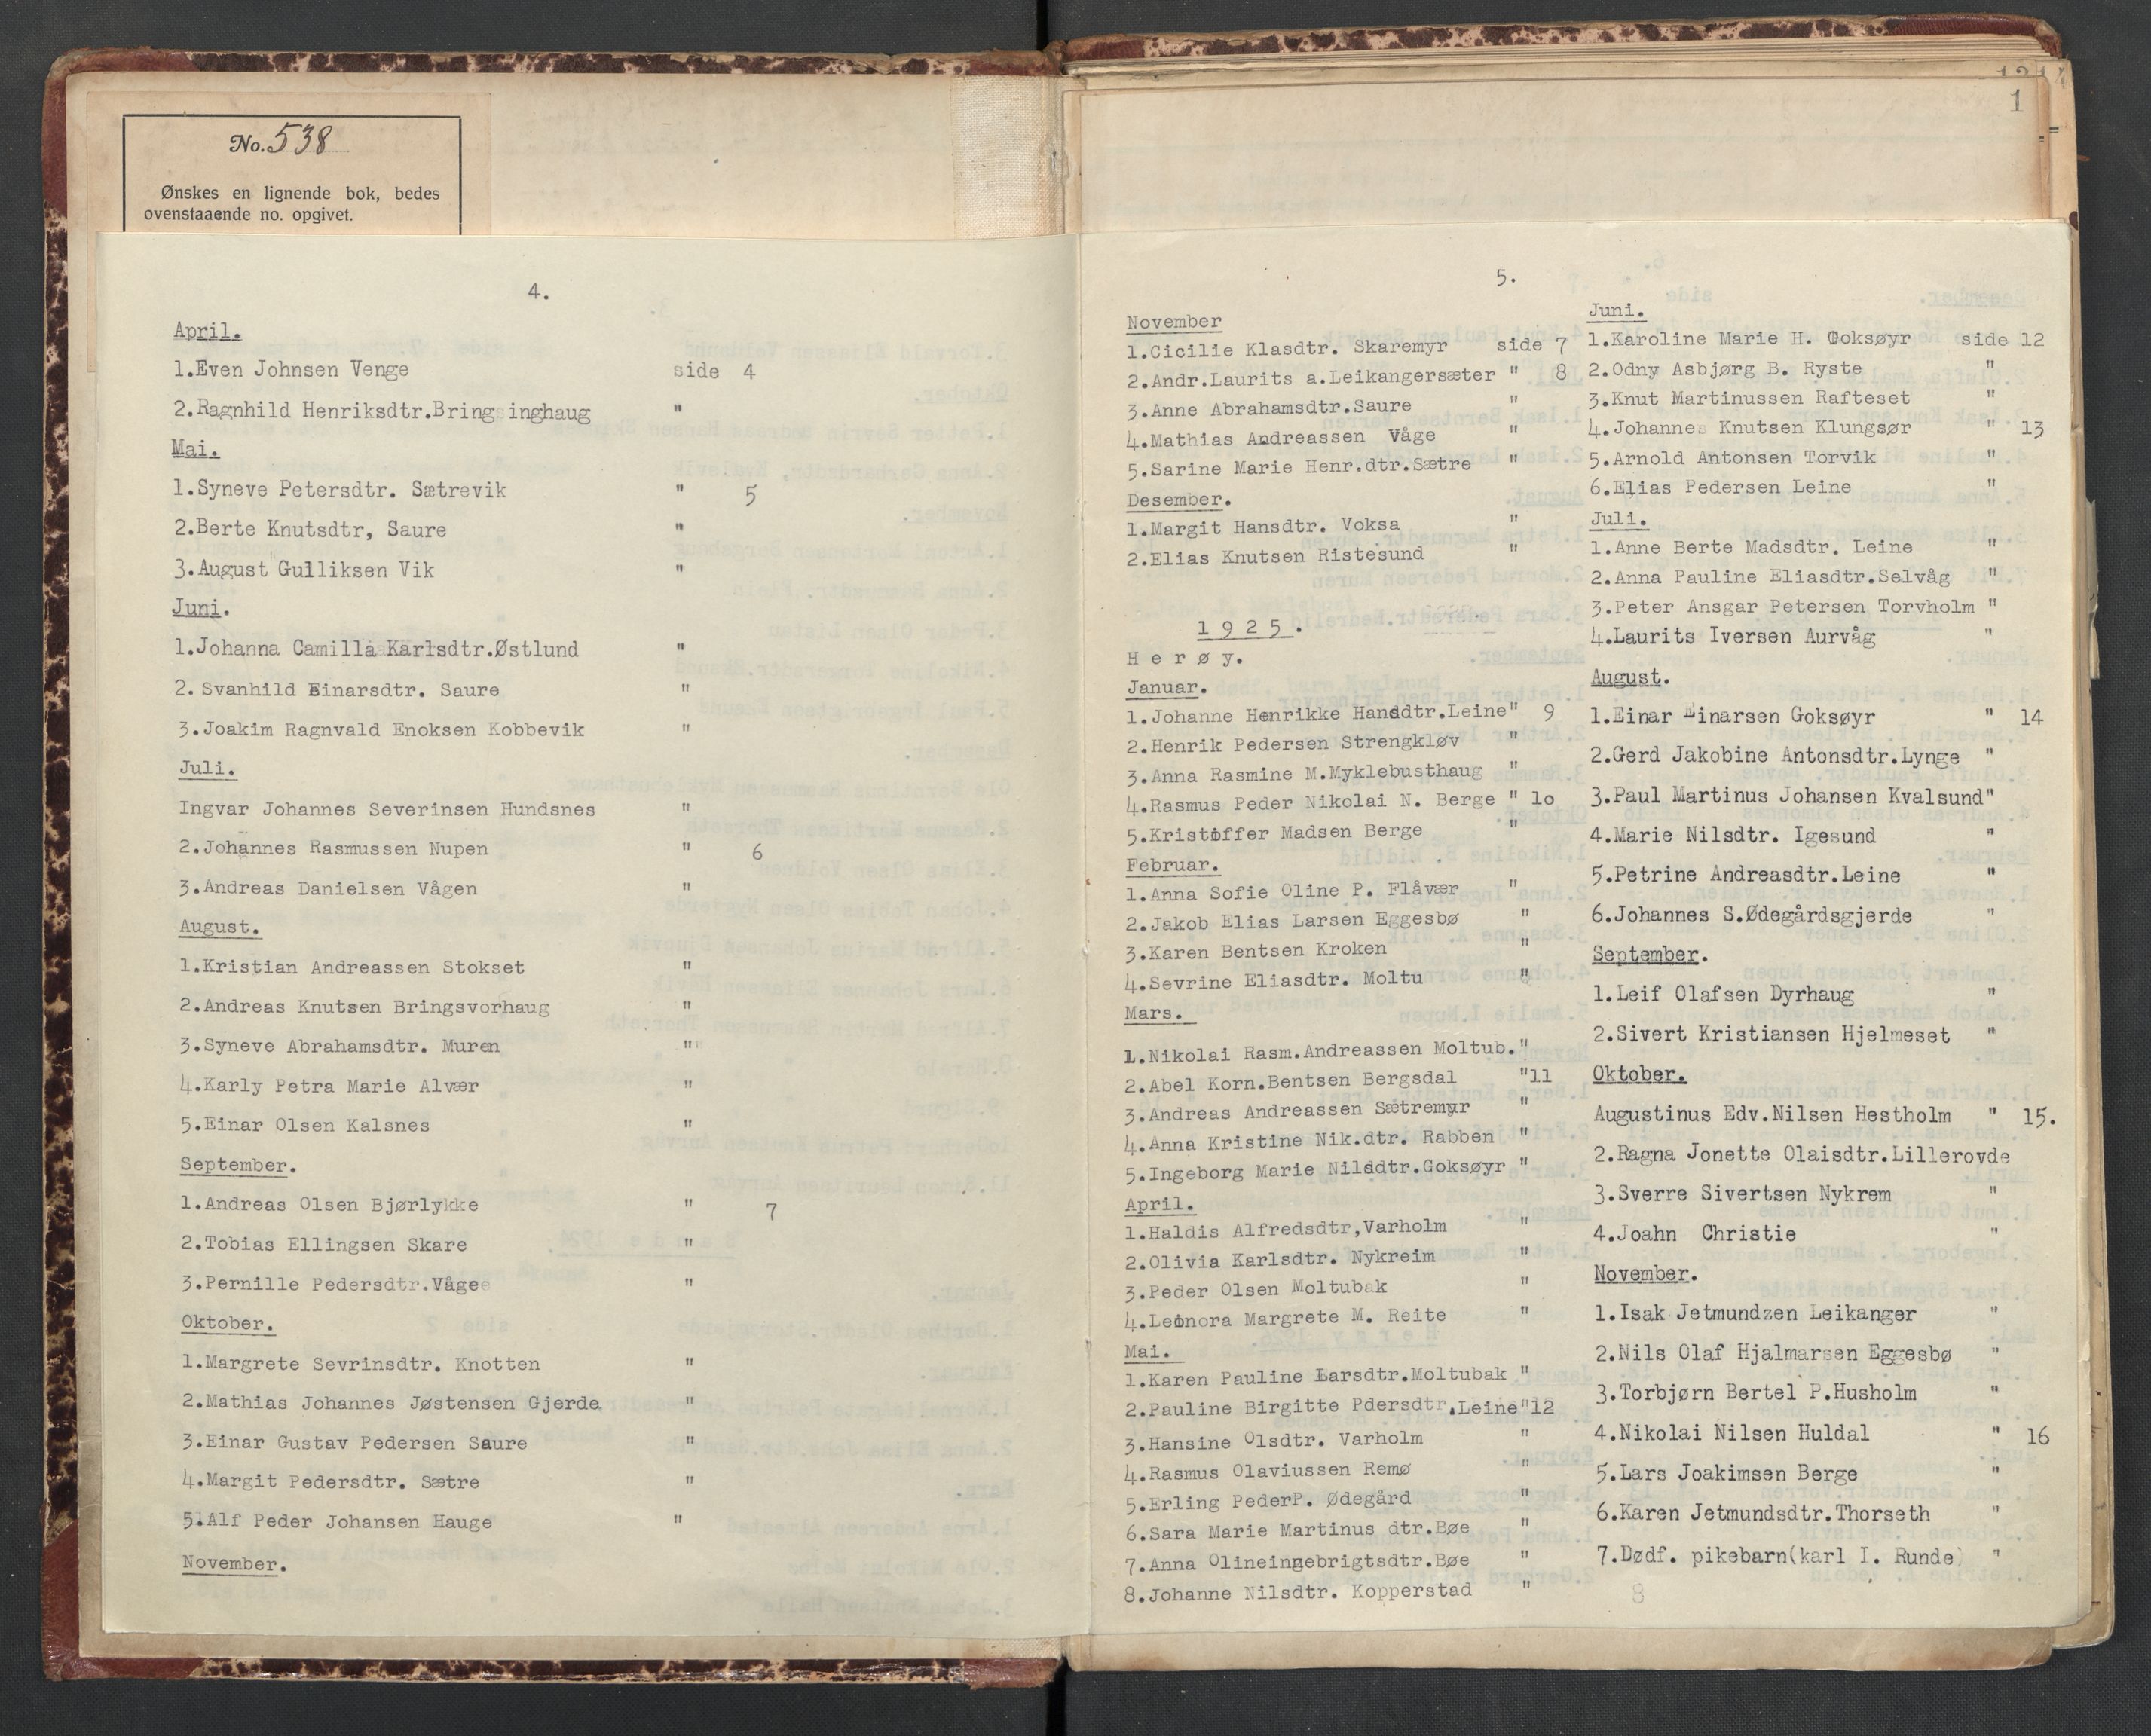 No. 538
Ønskes en lignende bok, bedes
ovenstaaende no. opgivet.
4.
April.
1.Even Johnsen Venge side 4
2.Ragnhild Henriksdtr.Bring inghaug "
Mai.
1.Syneve Petersdtr. Sætrevik " 5
2.Berte Knutsdtr, Saure "
3.August Gulliksen Vik "
Juni.
1.Johanna Camilla Karlsdtr.Østlund "
2. Svanhild Einarsdtr. Saure "
3.Joakim Ragnvald Enoksen Kobbevik "
Juli.
Ingvar Johannes Severinsen Hundsnes "
2.Johannes Rasmussen Nupen " 6
3.Andreas Danielsen Vågen "
August.
1.Kristian Andreassen Stokset "
2.Andreas Knutsen Bringsvorhaug "
3.Syneve Abrahamsdtr. Muren "
4.Karly Petra Marie Alvær "
5.Einar Olsen Kalsnes "
September.
1.Andreas Olsen Bjørlykke " 7
2.Tobias Ellingsen Skare "
3.Pernille Pedersdtr.Vågee "
Oktober.
1.Margrete Sevrinsdtr. Knotten "
2.Mathias Johannes Jøstensen Gjerde "
3.Einar Gustav Pedersen Saure "
4.Margit Pedersdtr. Sætre "
5.Alf Peder Johansen Hauge "
November.
1
5.
November
1.Cicilie Klasdtr. Skaremyr side 7
2.Andr.Laurits a.Leikangersæter " 8
3.Anne Abrahamsdtr.Saure "
4.Mathias Andreassen Våge "
5.Sarine Marie Henr.dtr.Sætre "
Desember.
1.Margit Hansdtr. Voksa "
2.Elias Knutsen Ristesund "
1925.
Herøy.
Januar.
1.Johanne Henrikke Hansdtr.Leine" 9
2.Henrik Pedersen Strengkløv "
3.Anna Rasmine M.Myklebusthaug "
4.Rasmus Peder Nikolai N. Berge " 1o
5.Kristoffer Madsen Berge "
Februar.
1.Anna Sofie Oline P. Flåvær "
2.Jakob Elias Larsen Eggesbø "
3.Karen Bentsen Kroken "
4.Sevrine Eliasdtr. Moltu "
Mars.
1.Nikolai Rasm.Andreassen Moltub."
2.Abel Korn.Bentsen Bergsdal "11
3.Andreas Andreassen Sætremyr "
4.Anna Kristine Nik.dtr. Rabben "
5.Ingeborg Marie Nilsdtr.Goksøyr "
April.
1.Haldis Alfredsdtr,Varholm "
2.Olivia Karlsdtr. Nykreim "
3.Peder Olsen Moltubak "
4.Leonora Margrete M. Reite "
Mai.
1.Karen Pauline Larsdtr.Moltubak "
2.Pauline Birgitte Pdersdtr.Leine"12
3.Hansine Olsdtr. Varholm "
4.Rasmus Olaviussen Remø "
5.Erling PederP. Ødegård "
6.Sara Marie Martinus dtr.Bøe "
7.Anna Olineingebrigtsdtr.Bøe "
8.Johanne Nilsdtr. Kopperstad "
Juni.
1.Karoline Marie H. Goksøyr side 12
2.Odny Asbjørg B. Ryste "
3.Knut Martinussen Rafteset "
4.Johannes Knutsen Klungsør " 13
5.Arnold Antonsen Torvik "
6.Elias Pedersen Leine "
Juli.
1.Anne Berte Madsdtr. Leine "
2.Anna Pauline Eliasdtr.Selvåg "
3.Peter Ansgar Petersen Torvholm "
4.Laurits Iversen Aurvåg "
August.
1.Einar Einarsen Goksøyr " 14
2.Gerd Jakobine Antonsdtr.Lynge "
3.Paul Martinus Johansen Kvalsund"
4.Marie Nilsdtr. Igesund "
5.Petrine Andreasdtr.Leine "
6.Johannes S.Ødegårdsgjerde "
September.
1.Leif Olafsen Dyrhaug "
2.Sivert Kristiansen Hjelmeset "
Oktober.
Augustinus Edv.Nilsen Hestholm " 15.
2.Ragna Jonette Olaisdtr.Lillerovde
3.Sverre Sivertsen Nykrem "
4.Joahn Christie "
November.
1.Isak Jetmundzen Leikanger "
2.Nils Olaf Hjalmarsen Eggesbø "
3.Torbjørn Bertel P.Husholm "
4.Nikolai Nilsen Huldal " 16
5.Lars Joakimsen Berge "
6.Karen Jetmundsdtr.Thorseth "
7.Dødf. pikebarn(karl I. Runde) "
8